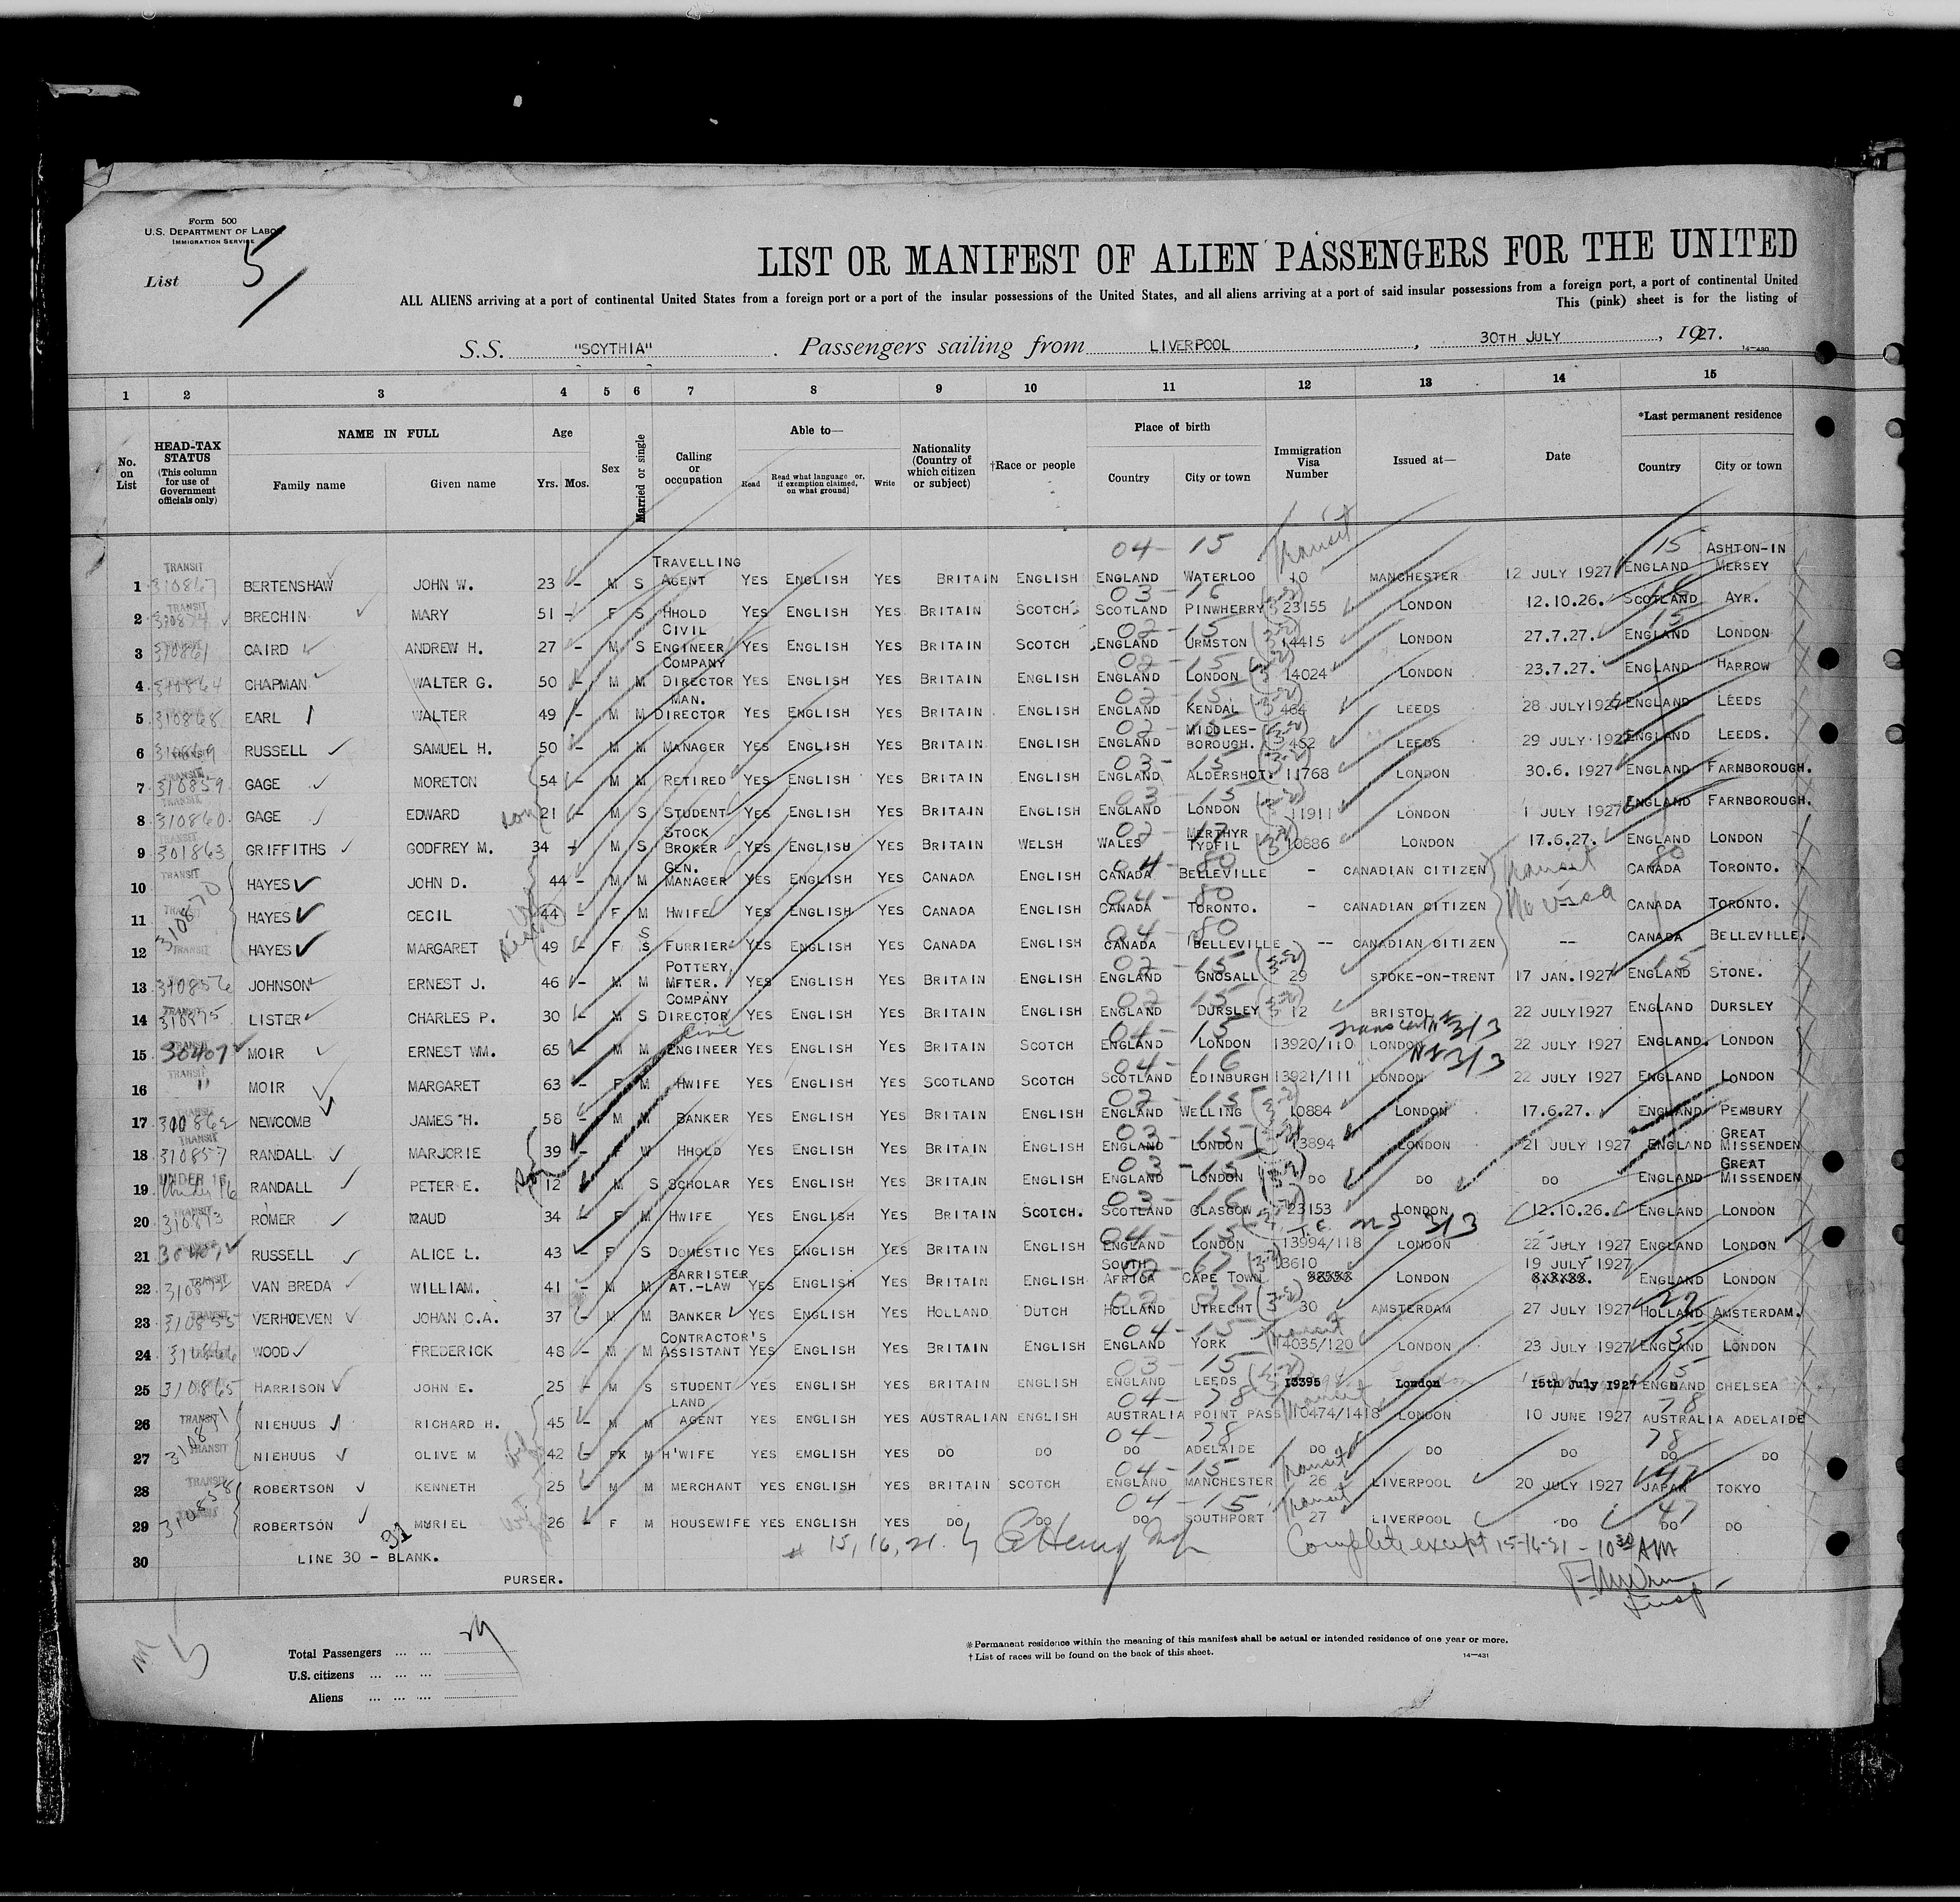 Form 500
U.S. DEPARTMENT OF LABOR
IMMIGRATION SERVICE
List 5
LIST OR MANIFEST OF ALIEN PASSENGERS FOR THE UNITED
ALL ALIENS arriving at a port of continental United States from a foreign port or a port of the insular possessions of the United States, and all aliens arriving at a port of said insular possessions from a foreign port, a port of continental United
This (pink) sheet is for the listing of
S.S. "SCYTHIA". Passengers sailing from LIVERPOOL, 30TH JULY, 1927.
14—430
1 2 3 4 5 6 7 8 9 10 11 12 13 14 15
No. on List
HEAD-TAX STATUS (This column for use of Government officials only)
NAME IN FULL
Family name Given name
Age
Yrs. Mos.
Sex
Married or single
Calling or occupation
Able to—
Read Read what language or, if exemption claimed, on what ground] Write
Nationality (Country of which citizen or subject)
†Race or people
Place of birth
Country City or town
Immigration Visa Number
Issued at—
Date
*Last permanent residence
Country City or town
04- 15 Transit 15
1 TRANSIT 310867 BERTENSHAW JOHN W. 23 - M S TRAVELLING AGENT YES ENGLISH YES BRITAIN ENGLISH ENGLAND WATERLOO 10 MANCHESTER 12 JULY 1927 ENGLAND ASHTON-IN MERSEY
03- 16
2 TRANSIT 310874 BRECHIN MARY 51 - F S HHOLD YES ENGLISH YES BRITAIN SCOTCH. SCOTLAND PINWHERRY 23155 LONDON 12.10.26. SCOTLAND AYR.
02- 15 15
3 310861 CAIRD ANDREW H. 27 - M S CIVIL ENGINEER YES ENGLISH YES BRITAIN SCOTCH ENGLAND URMSTON 14415 LONDON 27.7.27. ENGLAND LONDON
02- 15
4 310864 CHAPMAN WALTER G. 50 - M M COMPANY DIRECTOR YES ENGLISH YES BRITAIN ENGLISH ENGLAND LONDON 14024 LONDON 23.7.27. ENGLAND HARROW
02- 15
5 310868 EARL WALTER 49 - M M MAN. DIRECTOR YES ENGLISH YES BRITAIN ENGLISH ENGLAND KENDAL 464 LEEDS 28 JULY 1927 ENGLAND LEEDS
02- 15
6 310869 RUSSELL SAMUEL H. 50 - M M MANAGER YES ENGLISH YES BRITAIN ENGLISH ENGLAND MIDDLES-BOROUGH. 452 LEEDS 29 JULY 1927 ENGLAND LEEDS.
03- 15
7 TRANSIT 310859 GAGE MORETON 54 - M M RETIRED YES ENGLISH YES BRITAIN ENGLISH ENGLAND ALDERSHOT 11768 LONDON 30.6. 1927 ENGLAND FARNBOROUGH.
03- 15
8 TRANSIT 310860 GAGE EDWARD son 21 - M S STUDENT YES ENGLISH YES BRITAIN ENGLISH ENGLAND LONDON 11911 LONDON 1 JULY 1927 ENGLAND FARNBOROUGH.
02- 17
9 TRANSIT 301863 GRIFFITHS GODFREY M. 34 - M S STOCK BROKER YES ENGLISH YES BRITAIN WELSH WALES MERTHYR TYDFIL 10886 LONDON 17.6.27. ENGLAND LONDON
04- 80 Transit 80
10 TRANSIT HAYES JOHN D. 44 - M M GEN. MANAGER YES ENGLISH YES CANADA ENGLISH CANADA BELLEVILLE - CANADIAN CITIZEN CANADA TORONTO.
04- 80 No visa
11 310870 HAYES CECIL 44 - F M HWIFE YES ENGLISH YES CANADA ENGLISH CANADA TORONTO. - CANADIAN CITIZEN -- CANADA TORONTO.
04- 80
12 TRANSIT HAYES MARGARET 49 - F S FURRIER YES ENGLISH YES CANADA ENGLISH CANADA BELLEVILLE -- CANADIAN CITIZEN -- CANADA BELLEVILLE.
02- 15 15
13 310856 JOHNSON ERNEST J. 46 - M M POTTERY MFTER. YES ENGLISH YES BRITAIN ENGLISH ENGLAND GNOSALL 29 STOKE-ON-TRENT 17 JAN. 1927 ENGLAND STONE.
02- 15
14 310875 LISTER CHARLES P. 30 - M S COMPANY DIRECTOR YES ENGLISH YES BRITAIN ENGLISH ENGLAND DURSLEY 12 BRISTOL 22 JULY 1927 ENGLAND DURSLEY
04- 15 3/3
15 30407 MOIR ERNEST WM. 65 - M M Civil ENGINEER YES ENGLISH YES BRITAIN SCOTCH ENGLAND LONDON 13920/110 LONDON 22 JULY 1927 ENGLAND. LONDON
04- 16 3/3
16 TRANSIT " MOIR MARGARET 63 - F M HWIFE YES ENGLISH YES SCOTLAND SCOTCH SCOTLAND EDINBURGH 13921/111 LONDON 22 JULY 1927 ENGLAND LONDON
02- 15
17 TRANSIT 310862 NEWCOMB JAMES H. 58 - M M BANKER YES ENGLISH YES BRITAIN ENGLISH ENGLAND WELLING 10884 LONDON 17.6.27. ENGLAND PEMBURY
03- 15
18 TRANSIT 310857 RANDALL MARJORIE 39 - F W HHOLD YES ENGLISH YES BRITAIN ENGLISH ENGLAND LONDON 13894 LONDON 21 JULY 1927 ENGLAND GREAT MISSENDEN
03- 15
19 UNDER 16 Under 16 RANDALL PETER E. son 12 M S SCHOLAR YES ENGLISH YES BRITAIN ENGLISH ENGLAND LONDON DO DO DO ENGLAND GREAT MISSENDEN
03- 16
20 TRANSIT 310873 ROMER MAUD 34 - F M HWIFE YES ENGLISH YES BRITAIN SCOTCH. SCOTLAND GLASGOW 23153 LONDON 12.10.26. ENGLAND LONDON
04- 15 3/3
21 30407 RUSSELL ALICE L. 43 - F S DOMESTIC YES ENGLISH YES BRITAIN ENGLISH ENGLAND LONDON 13994/118 LONDON 22 JULY 1927 ENGLAND LONDON
02- 67
22 TRANSIT 310872 VAN BREDA WILLIAM. 41 - M M BARRISTER AT.-LAW YES ENGLISH YES BRITAIN ENGLISH SOUTH AFRICA CAPE TOWN 13610 LONDON 19 JULY 1927 ENGLAND LONDON
02- 27 22
23 TRANSIT 310855 VERHOEVEN JOHAN C.A. 37 - M M BANKER YES ENGLISH YES HOLLAND DUTCH HOLLAND UTRECHT 30 AMSTERDAM 27 JULY 1927 HOLLAND AMSTERDAM.
04- 15 Transit 15
24 310866 WOOD FREDERICK 48 - M M CONTRACTOR'S ASSISTANT YES ENGLISH YES BRITAIN ENGLISH ENGLAND YORK 14035/120 LONDON 23 JULY 1927 ENGLAND LONDON
03- 15 15
25 310865 HARRISON JOHN E. 25 - M S STUDENT YES ENGLISH YES BRITAIN ENGLISH ENGLAND LEEDS 13395 London 15th July 1927 ENGLAND CHELSEA
04- 78 Transit 78
26 TRANSIT 310871 NIEHUUS RICHARD H. 45 - M M LAND AGENT YES ENGLISH YES AUSTRALIAN ENGLISH AUSTRALIA POINT PASS 10474/1418 LONDON 10 JUNE 1927 AUSTRALIA ADELAIDE
04- 78 78
27 TRANSIT NIEHUUS OLIVE M 42 - FX M H'WIFE YES EMGLISH YES DO DO DO ADELAIDE DO DO DO DO DO
04- 15 Transit 47
28 TRANSIT 310858 ROBERTSON KENNETH 25 - M M MERCHANT YES ENGLISH YES BRITAIN SCOTCH ENGLAND MANCHESTER 26 LIVERPOOL 20 JULY 1927 JAPAN TOKYO
04- 15 Transit 47
29 ROBERTSON MURIEL 26 - F M HOUSEWIFE YES ENGLISH YES DO DO DO SOUTHPORT 27 LIVERPOOL DO DO DO
30 LINE 30 - BLANK. 31
15, 16, 21. Complete except 15-16-21 - 10 30 AM
PURSER.
Insp
Total Passengers ... ...
U.S. citizens ... ... ...
Aliens ... ... ...
*Permanent residence within the meaning of this manifest shall be actual or intended residence of one year or more.
†List of races will be found on the back of this sheet.
14—431